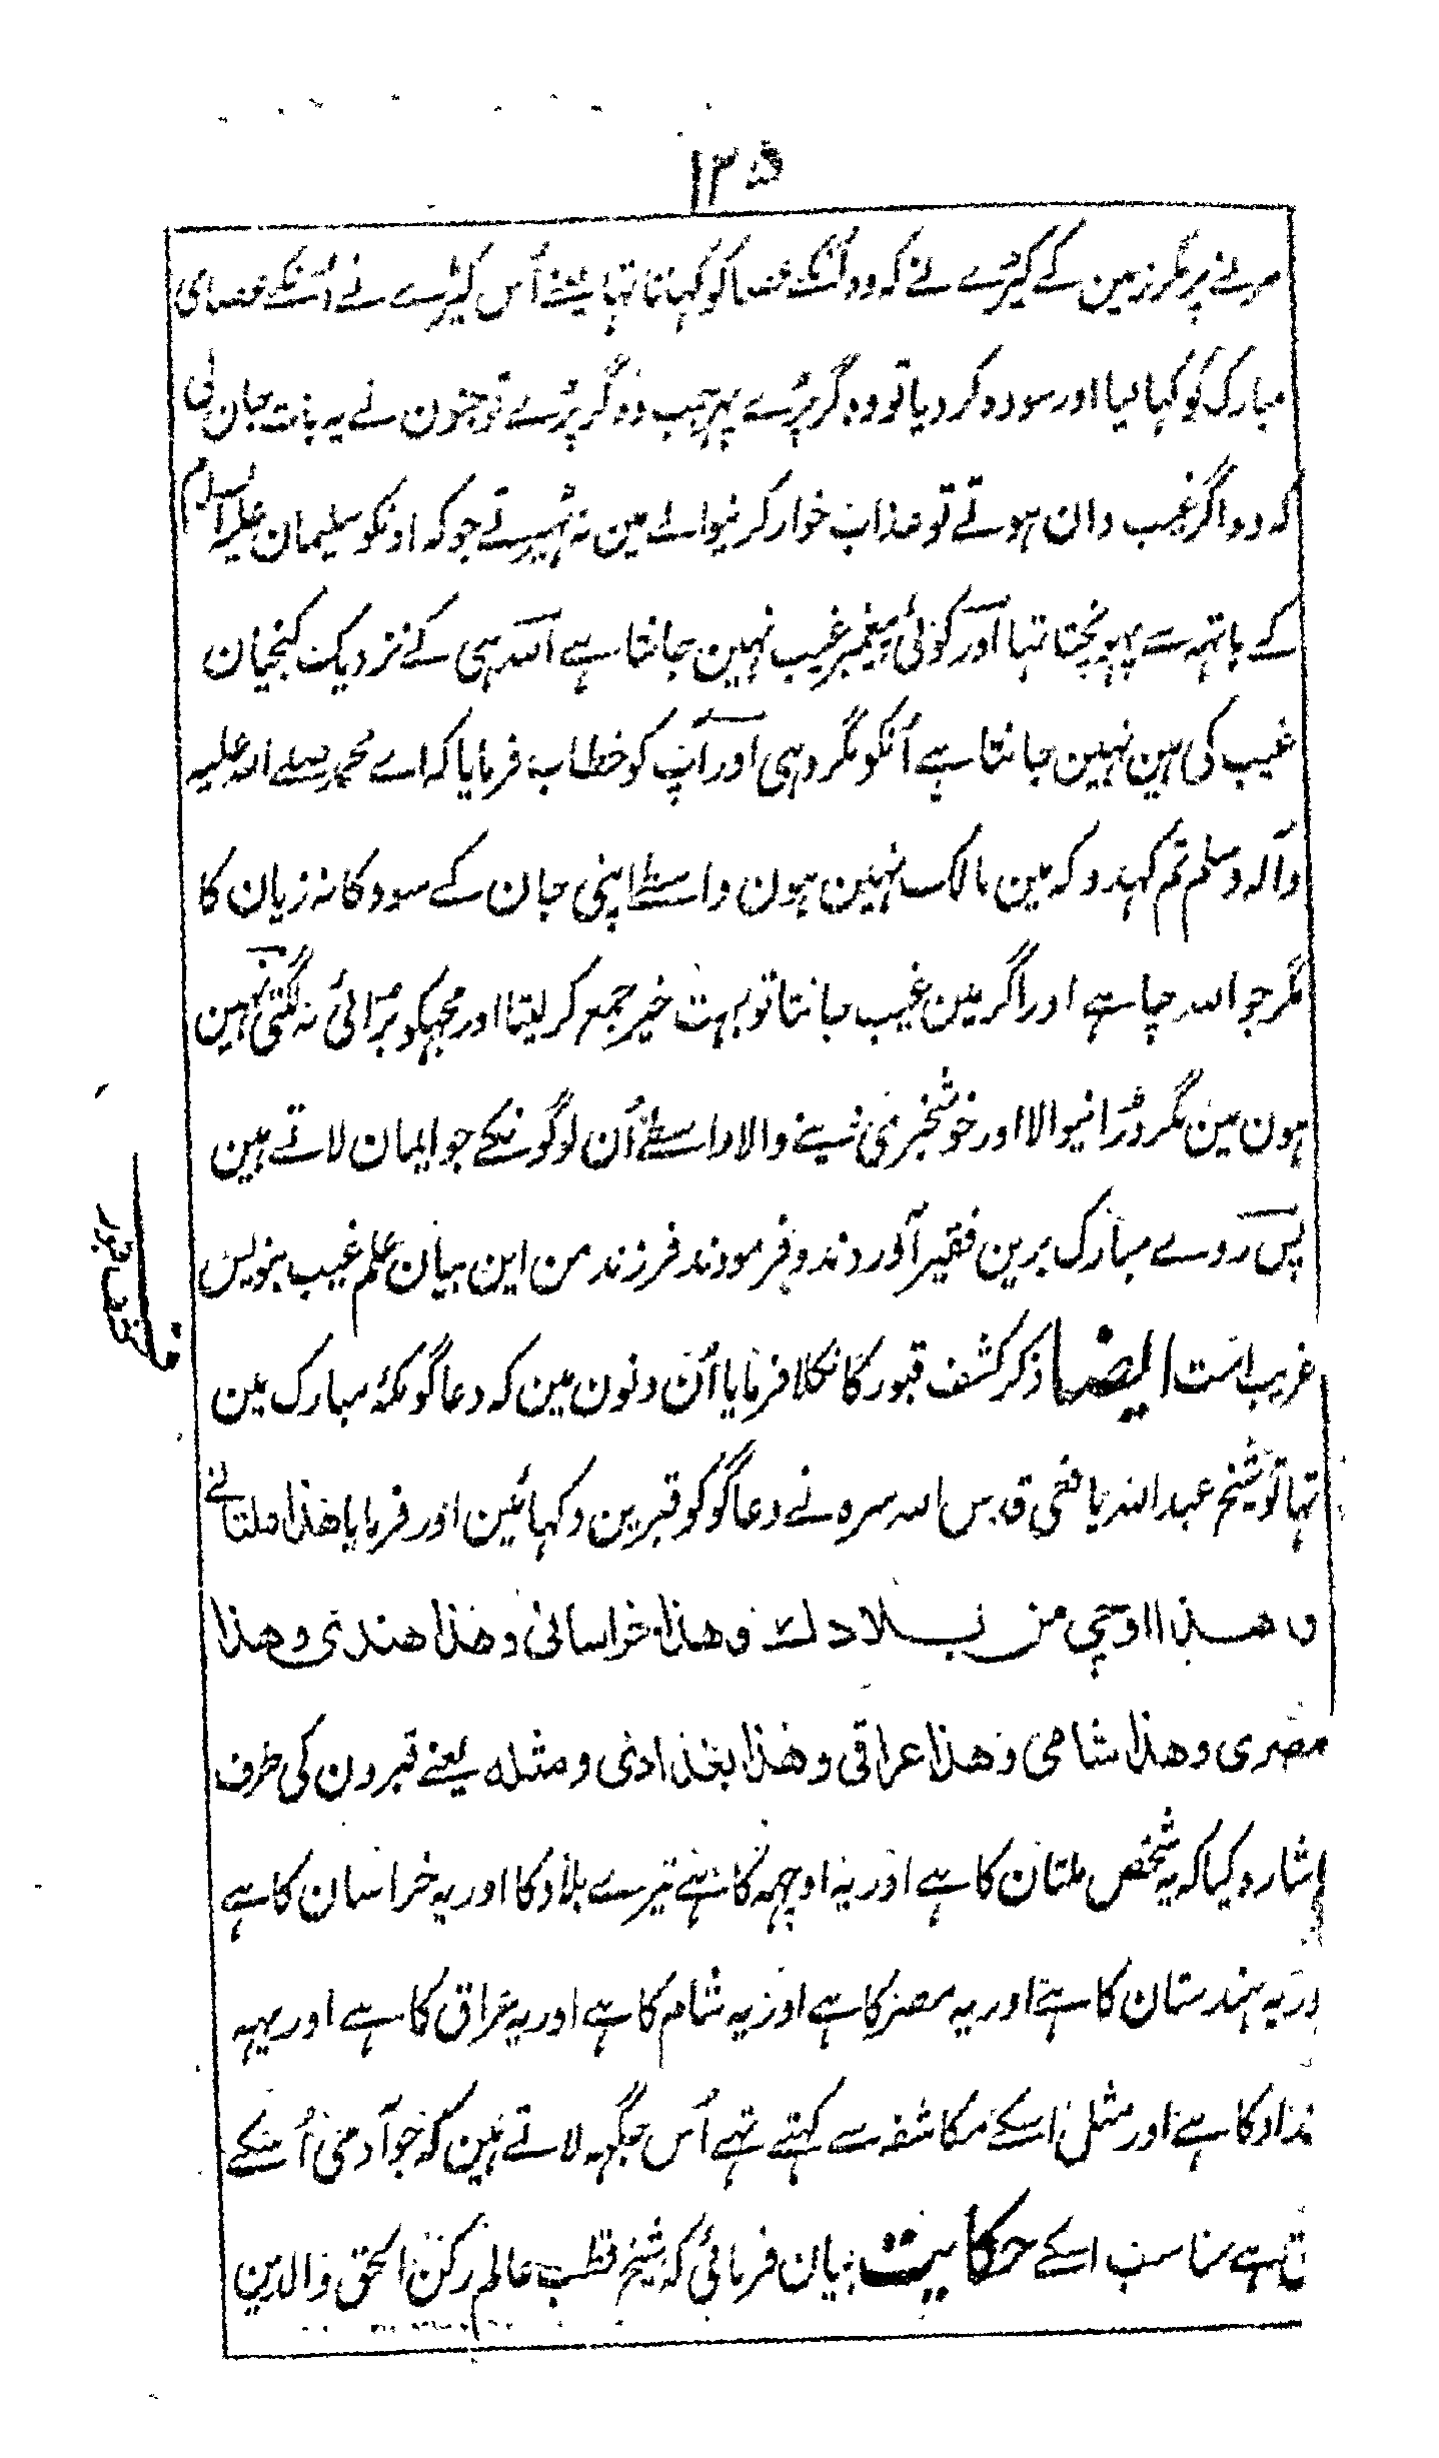 ۱۲۵
مرنے پر مگر زمین کے کیڑے نے کہ وہ اُنکے عصا کو کہاتا تہا یعنے اُس کیڑے نے اُنکے عصای
مبارک کو کہا لیا اور سودہ کر دیا تو وہ گر پڑے پہر جب وہ گر پڑے تو جنون نے یہ بات جان لی
کہ وہ اگر غیب دان ہوتے تو عذاب خوار کرنیوالے مین نہ ٹہیرتے جو کہ اونکو سلیمان علیہ السلام
کے ہاتہہ سے پہونچتا تہا اور کوئی پیغمبر غیب نہین جانتا ہے اللہ ہی کے نزدیک کنجیان
غیب کی ہین نہین جانتا ہے اُنکو مگر وہی اور آپ کو خطاب فرمایا کہ اے محمد صلے اللہ علیہ
وآلہ وسلم تم کہدو کہ مین مالک نہین ہون واسطے اپنی جان کے سود کا نہ زیان کا
مگر جو اللہ چاہے اور اگر مین غیب جانتا تو بہت خیر جمع کر لیتا اور مجہکو برائی نہ لگتی نہین
ہون مین مگر ڈرانیوالا اور خوشخبری دینے والا واسطے اُن لوگونکے جو ایمان لاتے ہین
پس روے مبارک برین فقیر آوردند و فرمودند فرزند من این بیان علم غیب بنویس
غریب است ایضا ذکر کشف قبور کا نکلا فرمایا اُن دنون مین کہ دعاگو مکۂ مبارک مین
تہا تو شیخ عبد اللہ یافعی قدس اللہ سرہ نے دعاگو کو قبرین دکہائین اور فرمایا ھذا ملتانے
و ھذا اوچی من بلادك و ھذا خراسانی و ھذا ھندی و ھذا
مصری و ھذا شامی و ھذا عراقی و ھذا بغدادی و مثلہ یعنے قبرون کی طرف
اشارہ کیا کہ یہ شخص ملتان کا ہے اور یہ اوچہہ کا ہے تیرے بلاد کا اور یہ خراسان کا ہے
ور یہ ہندستان کا ہے اور یہ مصر کا ہے اور یہ شام کا ہے اور یہ عراق کا ہے اور یہہ
غداد کا ہے اور مثل اسکے مکاشفہ سے کہتے تہے اُس جگہہ لاتے ہین کہ جو آدمی اُسکے
ہے مناسب اسکے حکایت بیان فرمائی کہ شیخ قطب عالم رکن الحق والدین
کشف قبور